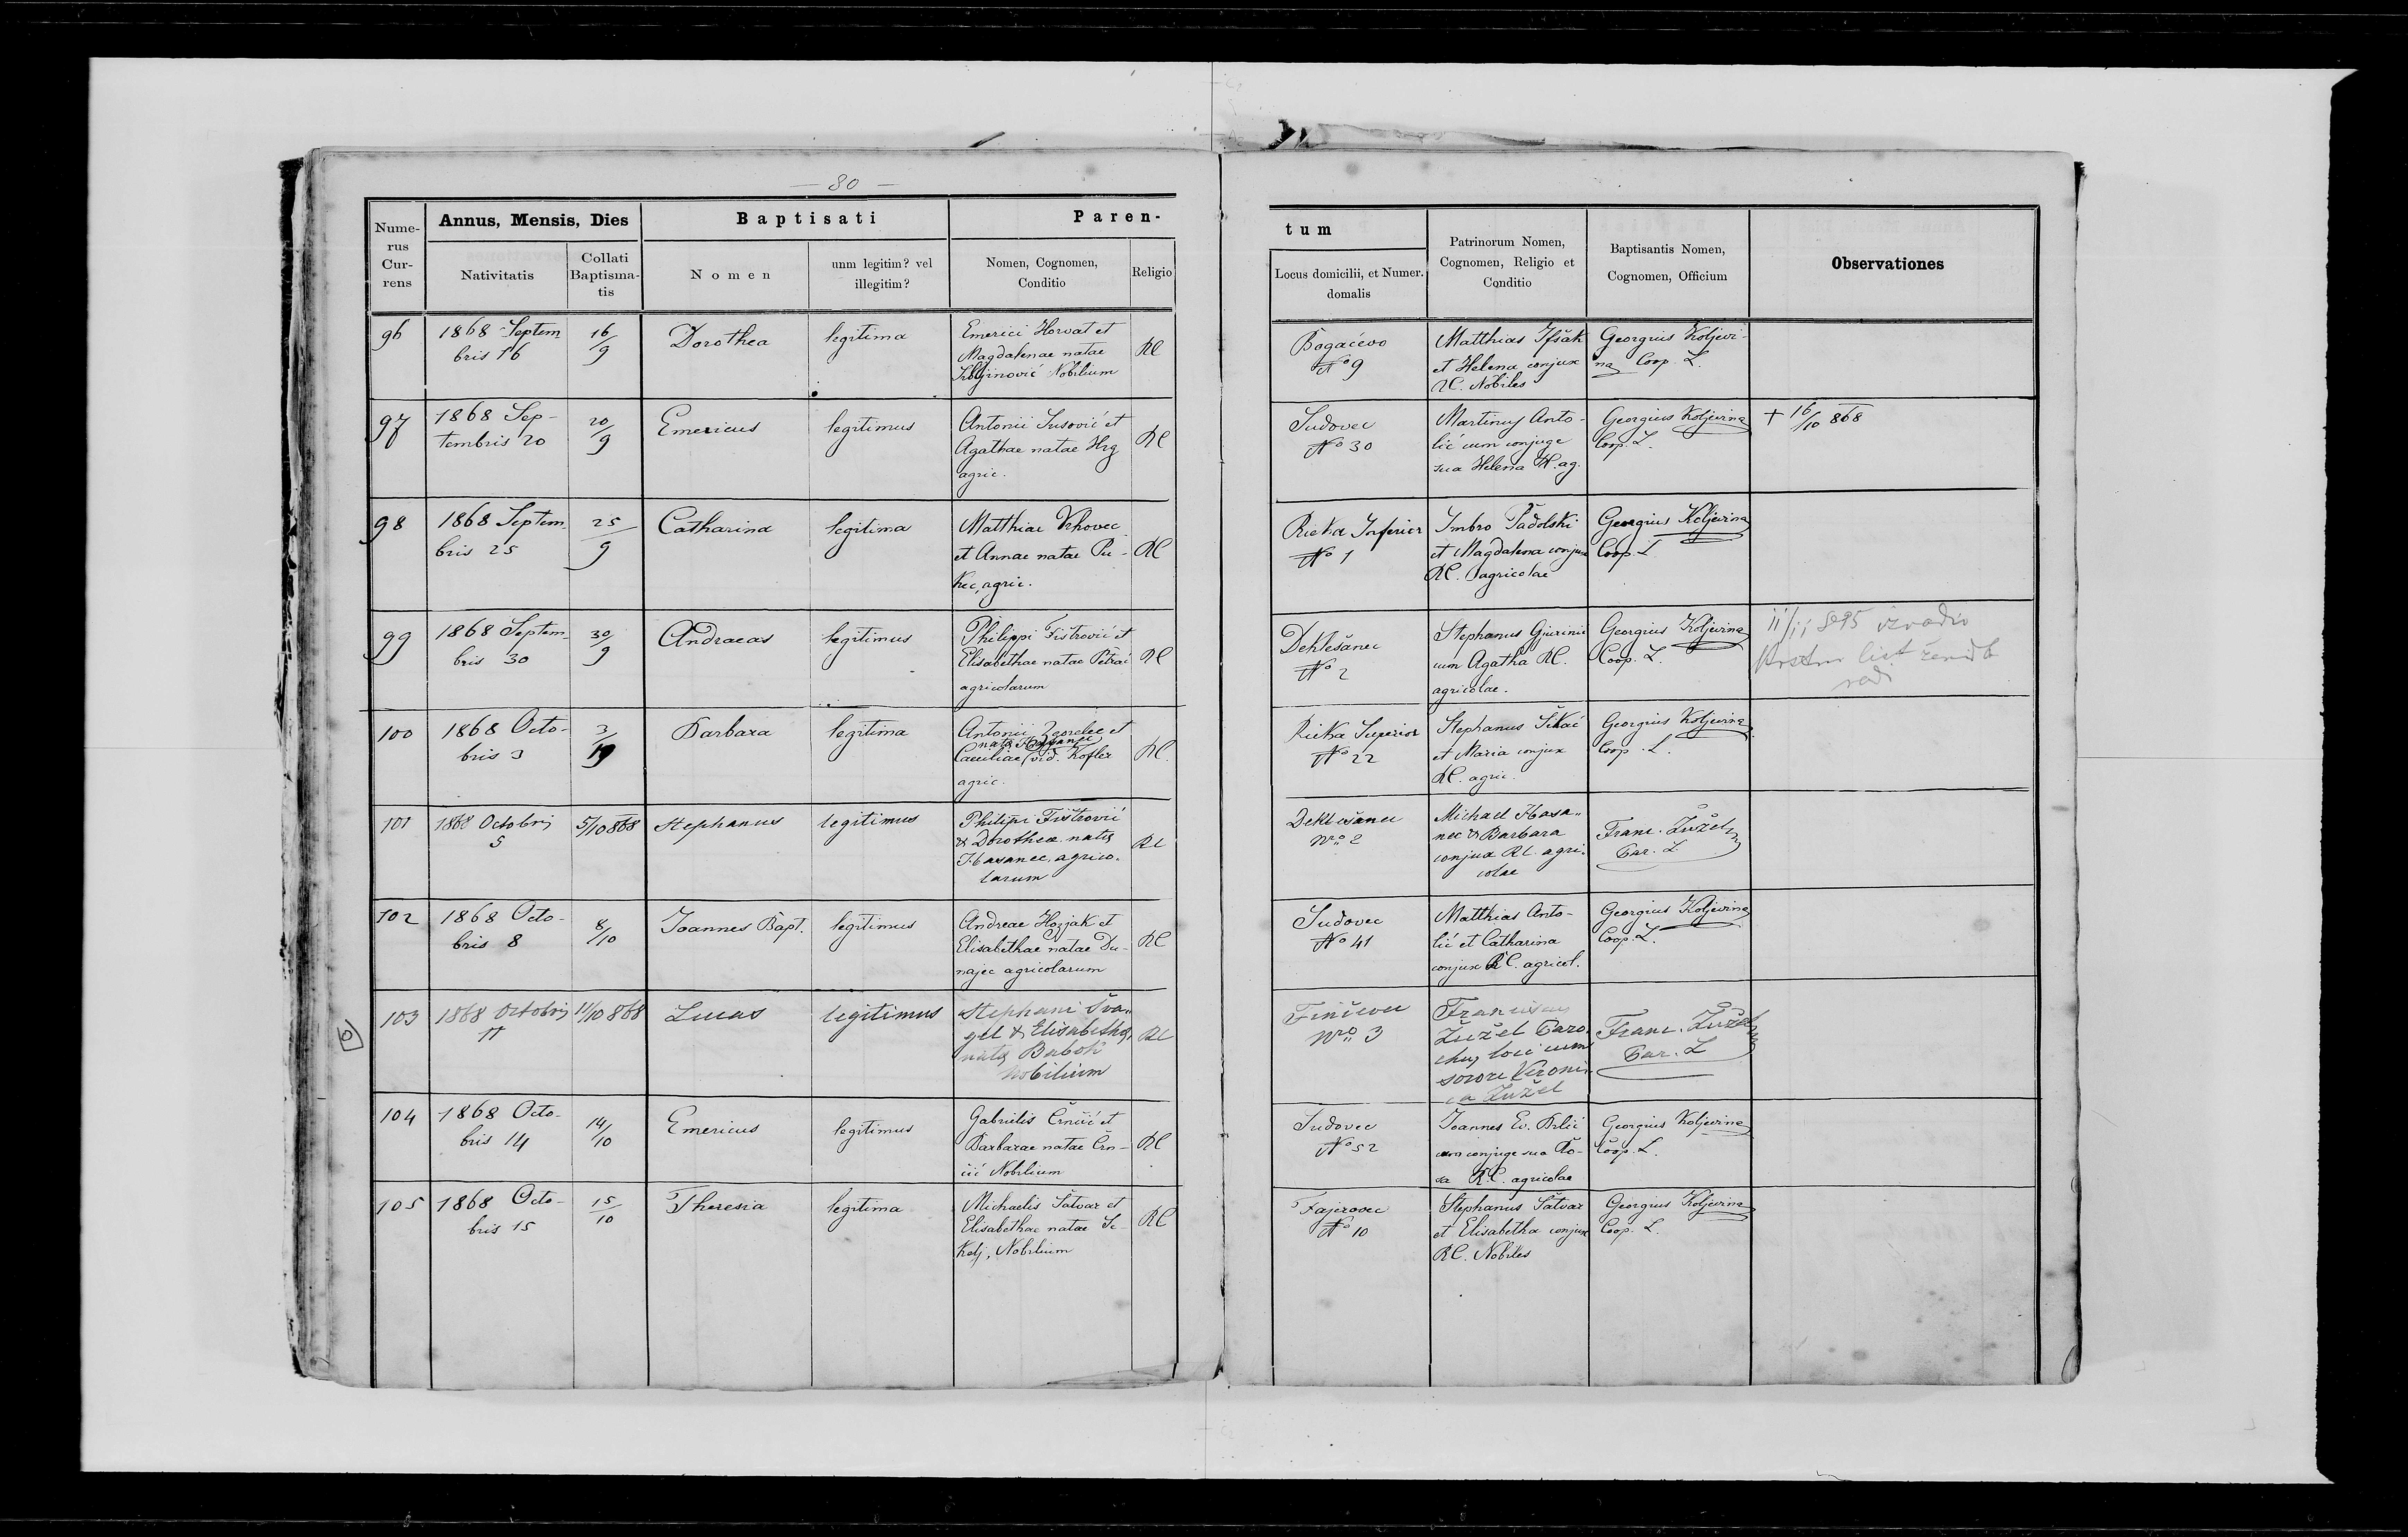 — 80 —
Nume-
rus
Cur-
rens
Annus, Mensis, Dies
Nativitatis
Collati
Baptisma-
tis
Baptisati
Nomen
unm legitim? vel
illegitim?
Paren-
Nomen, Cognomen,
Conditio
Religio
tum
Locus domicilii, et Numer.
domalis
Patrinorum Nomen,
Cognomen, Religio et
Conditio
Baptisantis Nomen,
Cognomen, Officium
Observationes
96
1868 Septem
bris 16
16/9
Dorothea
legitima
Emerici Horvat et
Magdalenae natae
Nobilium
RC
Bogačevo
No 9
Matthias
et Helena conjux
RC. Nobiles
Georgius Koljevi-
na Coop. L.
97
1868 Sep-
tembris 20
20/9
Emericus
legitimus
Antonii Susović et
Agathae natae Hrg
agric.
RC
Sudovec
No 30
Martinus Anto-
lić cum conjuge
sua Helena R. ag.
Georgius Koljevina
Coop. L.
+ 16/10 868
98
1868 Septem
bris 25
25/9
Catharina
legitima
Matthiae Vrhovec
et Annae natae Pu-
kec, agric.
RC
Rieka Inferior
No 1
Imbro Padolski
et Magdalena conjux
RC. agricolae
Georgius Koljevina
Coop. L
99
1868 Septem
bris 30
30/9
Andraeas
legitimus
Philippi Fištrović et
Elisabethae natae Petrač
agricolarum
RC
Deklešanec
No 2
Stephanus Gjurinić
cum Agatha RC.
agricolae.
Georgius Koljevina
Coop. L.
11/11 895 izvadio
krstni list ženidb
radi
100
1868 Octo-
bris 3
3
Barbara
legitima
Antonii Zgorelec et
natae
Caeciliae vid. Kofler
agric.
RC.
Rieka Superior
No 22
Stephanus Šikač
et Maria conjux
RC. agric.
Georgius Koljevina
Coop. L.
101
1868 Octobris
5
5/10 868
Stephanus
legitimus
Philipi Fištrović
& Dorothea natae
Habasanec, agrico-
larum
RC
Deklešanec
Nro 2
Michael
nec & Barbara
conjux RC. agri-
colae
Franc. Žužel
Par. L
102
1868 Octo-
bris 8
8/10
Joannes Bapt.
legitimus
Andreae Hozjak et
Elisabethae natae Du-
najec agricolarum
RC
Sudovec
No 41
Matthias Anto-
lić et Catharina
conjux RC. agricol.
Georgius Koljevina
Coop. L.
103
1868 Octobris
11
11/10 868
Lucas
legitimus
Stephani Šva-
gel & Elisabethae,
natae
Nobilium
RC
Finčevec
Nro 3
Franciscus
Žužel Paro-
chus loci cum
sorore Veroni-
ca Žužel
Franc. Žužel
Par. L
104
1868 Octo-
bris 14
14/10
Emericus
legitimus
Gabrielis Črnčić et
Barbarae natae Črn-
čić Nobilium
RC
Sudovec
No 52
Joannes Ev. Brlić
cum conjuge sua Ro-
sa R.C. agricolae
Georgius Koljevina
Coop. L.
105
1868 Octo-
bris 15
15/10
Theresia
legitima
Michaelis Šatvar et
Elisabethae natae Se-
kelj, Nobilium
RC
Fajerovec
No 10
Stephanus Šatvar
et Elisabetha conjux
RC. Nobiles
Georgius Koljevina
Coop. L.